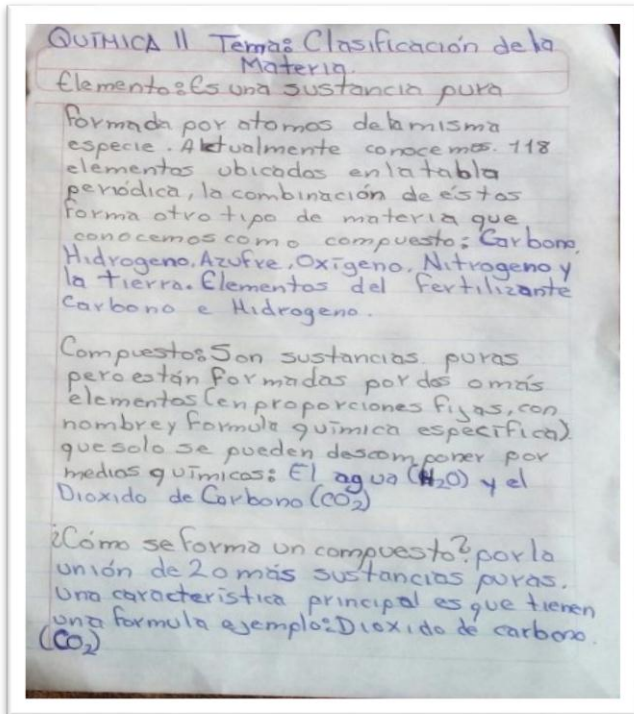 QUÍMICA II Tema: Clasificación de la
Materia.
Elemento: Es una sustancia pura
formada por atomos de la misma
especie. Aktualmente conocemos. 118
elementos ubicados en la tabla
periódica, la combinación de éstos
forma otro tipo de materia que
conocemos como compuesto: Carbono,
Hidrogeno, Azufre, Oxígeno, Nitrogeno y
la tierra. Elementos del fertilizante
Carbono e Hidrogeno.
Compuesto: Son sustancias puras
pero están formadas por dos o más
elementos (en proporciones fijas, con
nombre y formula química específica)
que solo se pueden descomponer por
medios químicos: El agua (H2O) y el
Dioxido de Carbono (CO2)
¿Cómo se forma un compuesto? por la
unión de 2 o más sustancias puras.
Una característica principal es que tienen
una formula ejemplo: Dioxido de carbono.
(CO2)